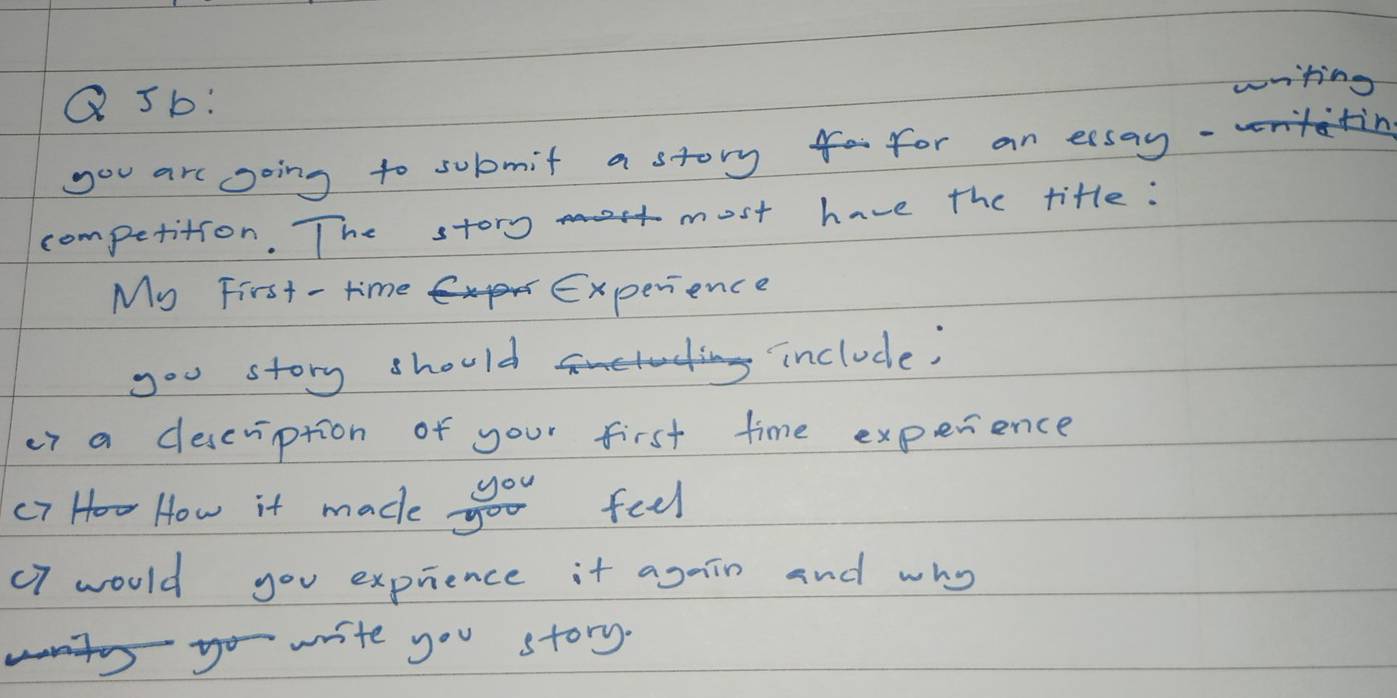 Q 5b:
you are going to submit a story for an essay - writing
competition. The story most have the title:
My First-time Experience
you story should include:
a description of your first time experience
How it made you feel
would you exprience it again and why
write you story.